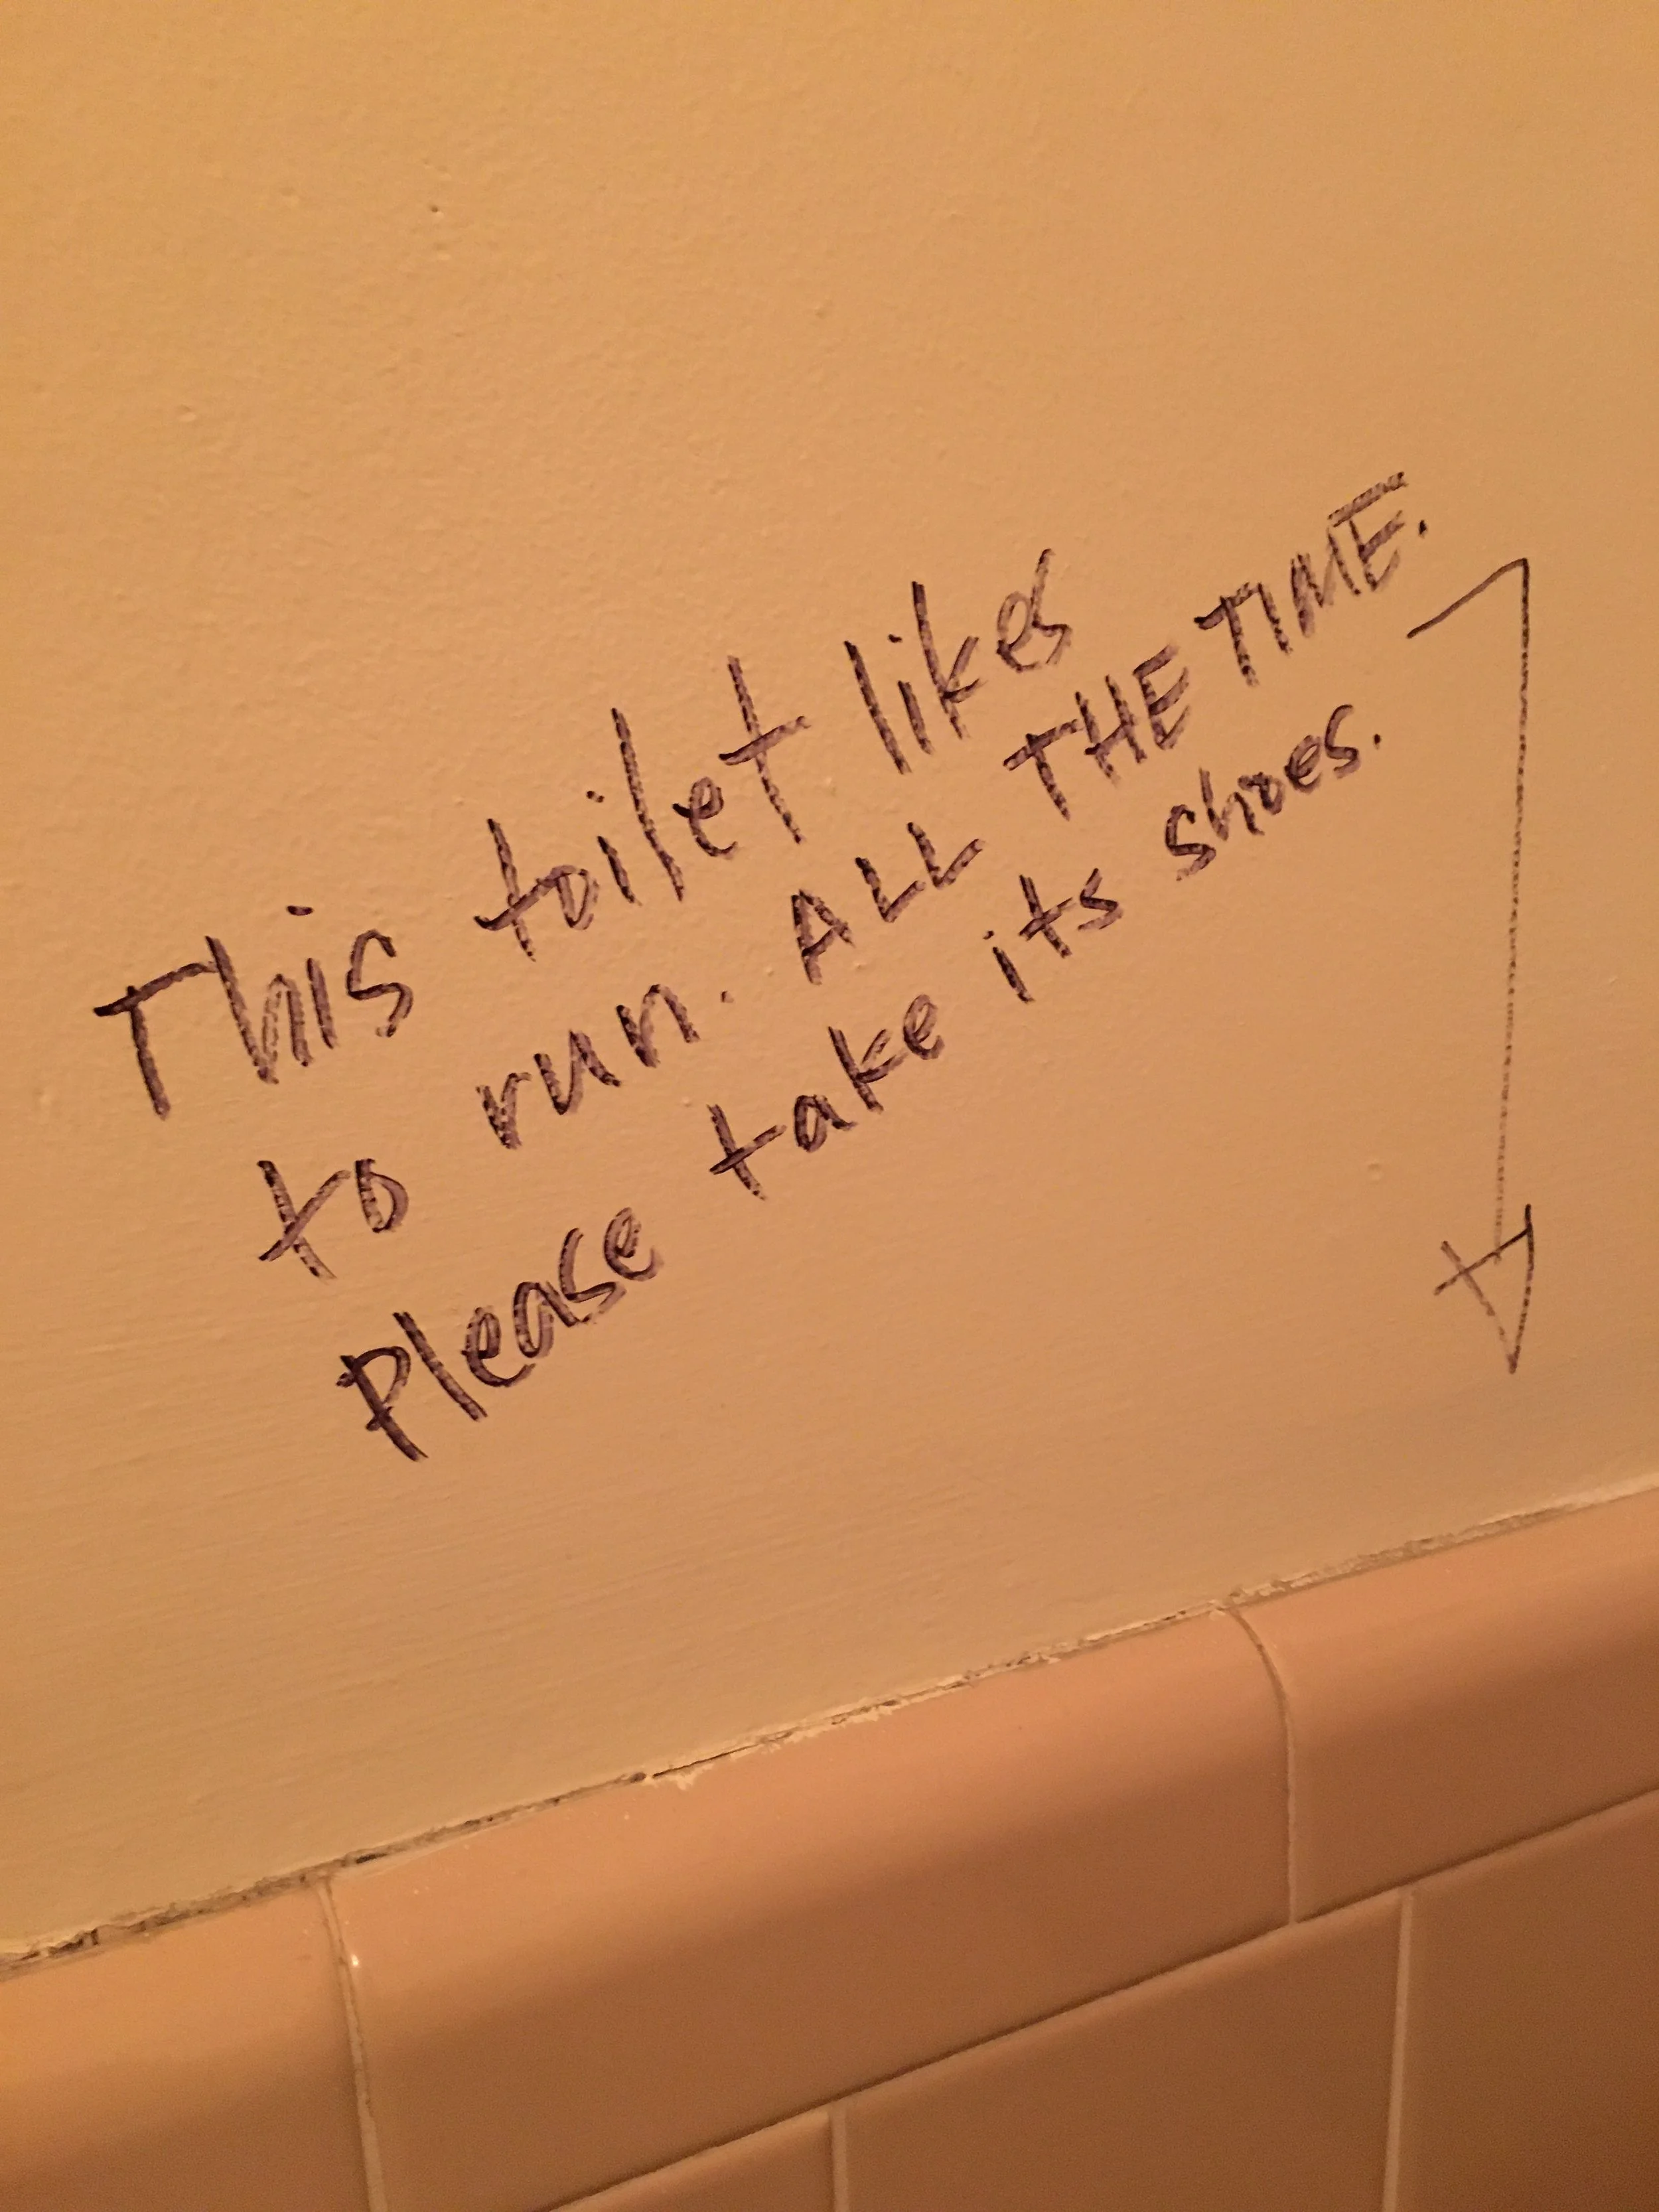 This toilet likes
to run. ALL THE TIME.
Please take its shoes.